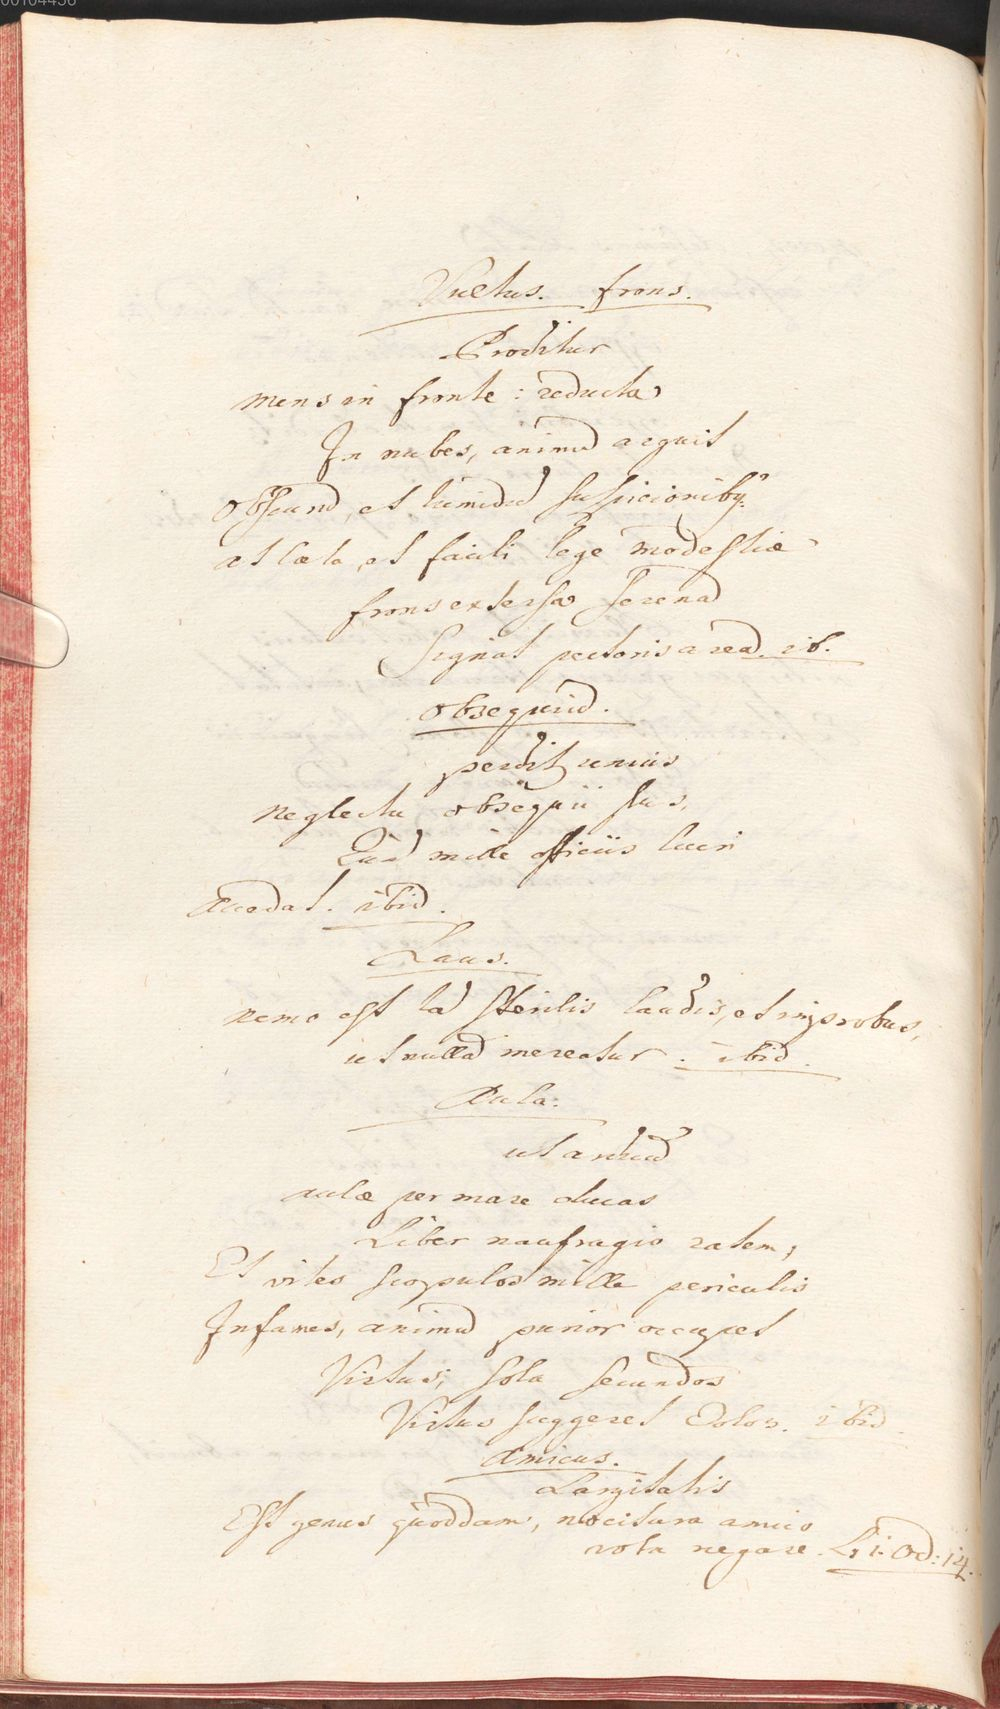 00104456
Vultus. frons.
Proditur
mens in fronte: reducta
In nubes, animũ arguit
obscurũ, et tumidũ suspicionibq.
at laeta, et facili lege modestiae
frons extersa serenã
Signat pectoris areã. ib.
Obsequiũ.
perdit unius
neglectu obsequii suos,
Quos mille officiis lucri
Aucdat. ibid.
Laus.
nemo est tã sterilis laudis, et improbus,
ut nullã mereatur. ibid.
Aula.
ut arduũ
aulæ per mare ducas
Liber naufragio ratem;
Et vites scopulos mille periculis
Infames, animũ purior occupet
Virtus; sola secundos
Virtus suggeret Eolos. ibid
Amicus.
Largitatis
Est genus quoddam, nocitura amico
vota negare. L: 1. Od: 14.